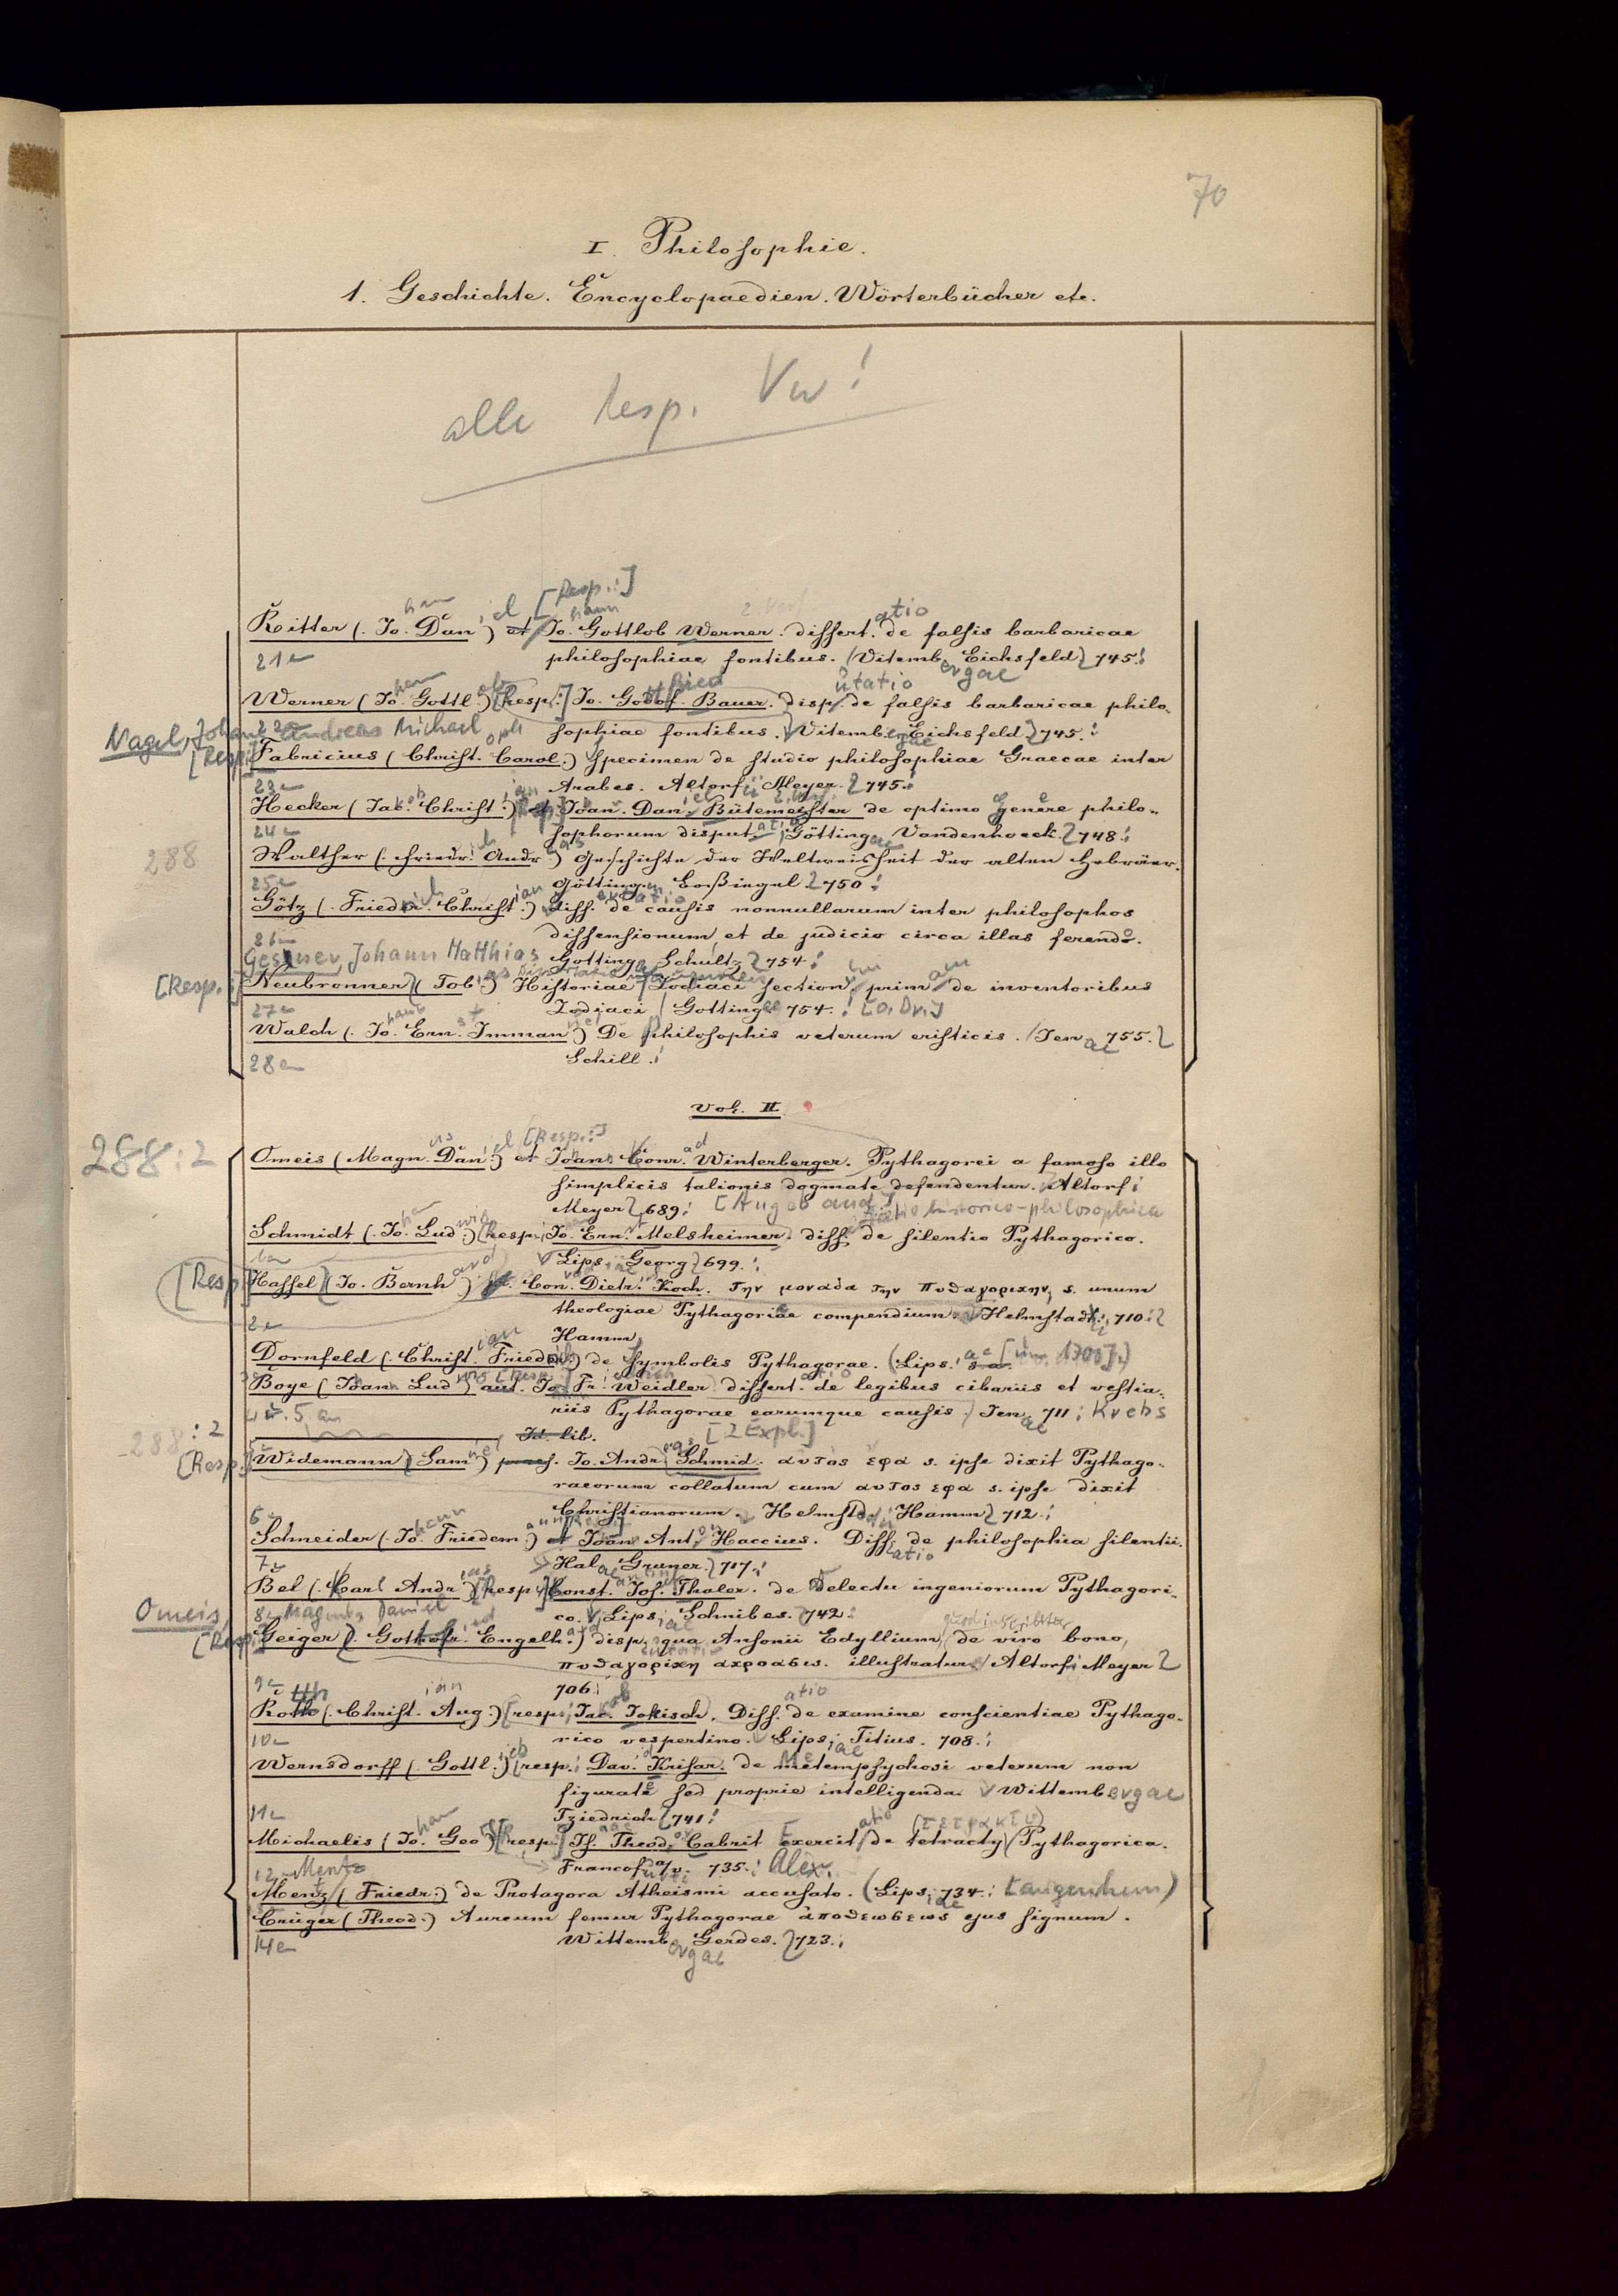 70
I. Philosophie.
1. Geschichte. Encyclopaedien. Wörterbücher etc.
alle Resp. Vw!
[Resp.:]
Ritter (. Jo. Dan.) et Jo. Gottlob Werner. dissert. de falsis barbaricae
21
philosophiae fontibus. Vitemb. Eichsfeld 745.
Werner (Jo. Gottl.) [Resp.:] Jo. Godof. Bauer. disp. de falsis barbaricae philo-
sophiae fontibus. Vitemb. Eichsfeld 745.
Nagel, Johann Andreas Michael
[Resp.:] Fabricius (Christ. Carol.) Specimen de studio philosophiae Graecae inter
23
Arabes. Altorf. Meyer. 745.
Hecker (Jac. Christ.) Joan. Dan. Bütemeister de optimo genere philo-
24
sophorum disput. Götting. Vandenhoeck. 748.
288
Walther (. Friedr. Andr.) Geschichte der Weltweisheit der alten Hebräer.
25
Götting. Boßiegel 750.
Götz (. Friedr. Christ.) diss. de causis nonnullarum inter philosophos
26
dissensionum et de judicio circa illas ferendo.
Gesner, Johann Matthias
Gotting. Schultz 754.
[Resp.:] Neubronner (Tob.) Historiae Zodiaci section. prim. de inventoribus
27
Zodiaci Gotting. 754. [o. Dr.]
Walch (. Jo. Ern. Imman.) De philosophis veterum eristicis. Jen. 755.
28
Schill.
Vol. II.
288:2
[Resp.:]
Omeis (Magn. Dan.) et Joan. Conr. Winterberger. Pythagorei a famoso illo
simplicis talionis dogmate defendentur. Altorf.
Meyer 689.
historico-philosophica
Schmidt (. Jo. Lud.) [Resp.: Jo. Ern. Melsheimer. diss. de silentio Pythagorico.
1
Lips. Georg 699.
[Resp.] Hassel (Jo. Bernh.) Con. Dietr. Koch. την μοναδα την πυθαγορικην, s. unum
theologiae Pythagoricae compendium. Helmstadt. 710.
2
Hamm.
Dornfeld (. Christ. Frieder.) de Symbolis Pythagorae. (Lips. s. a.
Boye (Joan. Lud.) aut. Jo. Fr. Weidler dissert. de legibus cibariis et vestia-
riis Pythagorae earumque causis. Jen. 711. Krebs
4 u. 5
288:2
Id. lib. [2 Expl.]
[Resp.] Widemann (Sam.) praes. Jo. Andr. Schmid. αυτος εφα s. ipse dixit Pythago-
raeorum collatum cum αυτος εφα s. ipse dixit
Christianorum. Helmst. Hamm 712.
6
Schneider (. Jo. Friedem.) et Joan. Ant. Haccius. Diss. de philosophia silentii.
7
Hal. Gruner. 717.
Bel (. Carl Andr.) [Resp.] Const. Jos. Thaler. de delectu ingeniorum Pythagori-
8
co. Lips. Schnibes. 742.
Omeis, Magnus Daniel
quod inscribitur
[Resp.] Geiger (. Gottofr. Engelh.) disp. qua Ansonii Edyllium de viro bono,
πυθαγορικη ακροασις. illustratur. Altorf. Meyer
9
706.
Roth (. Christ. Aug.) [resp.: Jac. Jokisch. Diss. de examine conscientiae Pythago-
10
rico vespertino. Lips. Titius. 708.
Wernsdorff (. Gottl.) [resp.: Dav. Krisar. de metempsychosi veterum non
figurate sed proprie intelligenda. Wittembergae
11
Tziedrich 741.
(τετρακτυ)
Michaelis (Jo. Geo.) [resp.:] Is. Theod. Cabrit exercit. de tetracty Pythagorica.
12
Francof. a/v. 735. Alex.
Mentz
Menz (Friedr.) de Protagora Atheismi accusato. (Lips. 734. Langenhem)
Crüger (Theod.) Aureum femur Pythagorae αποθεωσεως ejus signum.
14
Wittembergae Gerdes. 723.